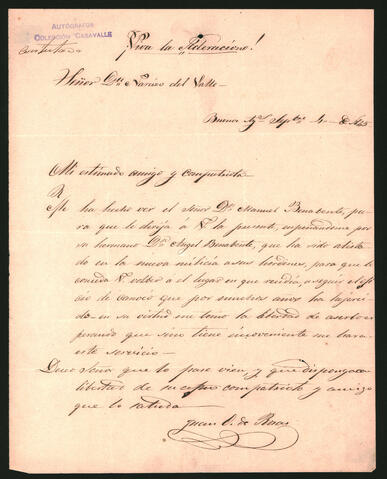 AUTÓGRAFOS
COLECCIÓN CASAVALLE
Contestada
¡Viva la Federacion!
Señor Dn. Narciso del Valle
Buenos Ays. Sepbre. 4 de
Mi estimado amigo y compatriota
Me ha hecho ver el Señor Dn. Manuel Benabente, pa
ra que le dirija á V. la presente, empeñandome por
su hermano Dn. Angel Benabente, que ha sido alista
do en la nueva milicia a sus hordenes, para que le
conceda V. volber a el lugar en que rendia, a seguir el
cio de que por muchos años ha
do en su virtud me tomo la libertad de
perando que sino tiene inconveniente me hara
este servicio
Deseo Señor que lo pase bien, y que disponga
libertad de su compatriota y amigo
que lo saluda
Juan de Rosas